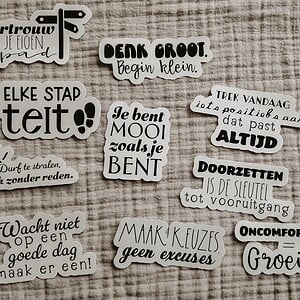 ertrouw
JE EIGEN
pad
DENK GROOT.
Begin klein.
ELKE STAP
telt!
Je bent
MOOI
zoals je
BENT
TREK VANDAAG
iets positiefs aan
dat past
ALTIJD
Durf te stralen,
k zonder reden.
DOORZETTEN
IS DE SLEUTEL
tot vooruitgang
Wacht niet
op een
goede dag
maak er een!
MAAK KEUZES
geen excuses
ONCOMFOR
Groei